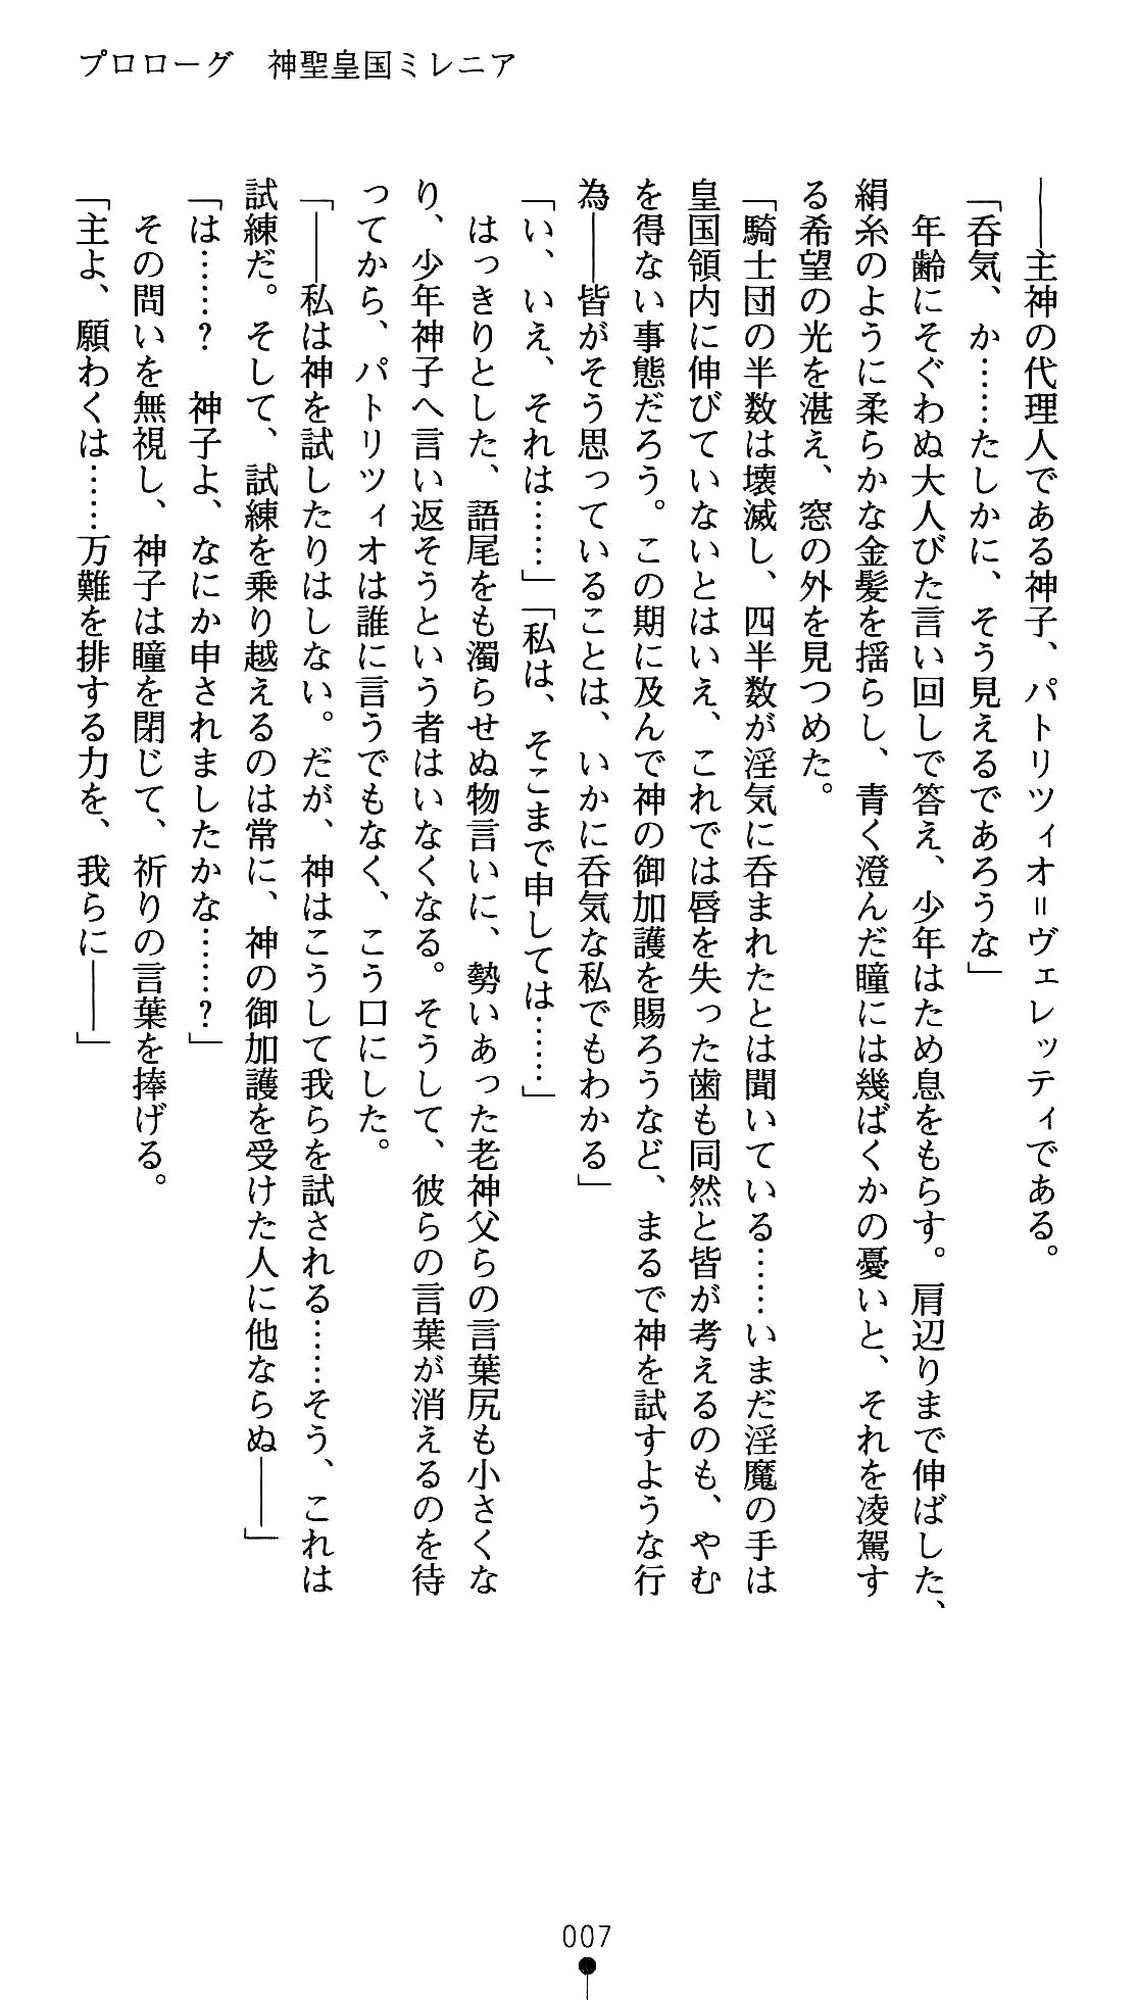 プロローグ　神聖皇国ミレニア
――主神の代理人である神子、パトリツィオ＝ヴェレッティである。
「呑気、か……たしかに、そう見えるであろうな」
　年齢にそぐわぬ大人びた言い回しで答え、少年はため息をもらす。肩辺りまで伸ばした、
絹糸のように柔らかな金髪を揺らし、青く澄んだ瞳には幾ばくかの憂いと、それを凌駕す
る希望の光を湛え、窓の外を見つめた。
「騎士団の半数は壊滅し、四半数が淫気に呑まれたとは聞いている……いまだ淫魔の手は
皇国領内に伸びていないとはいえ、これでは唇を失った歯も同然と皆が考えるのも、やむ
を得ない事態だろう。この期に及んで神の御加護を賜ろうなど、まるで神を試すような行
為――皆がそう思っていることは、いかに呑気な私でもわかる」
「い、いえ、それは……」「私は、そこまで申しては……」
　はっきりとした、語尾をも濁らせぬ物言いに、勢いあった老神父らの言葉尻も小さくな
り、少年神子へ言い返そうという者はいなくなる。そうして、彼らの言葉が消えるのを待
ってから、パトリツィオは誰に言うでもなく、こう口にした。
「――私は神を試したりはしない。だが、神はこうして我らを試される……そう、これは
試練だ。そして、試練を乗り越えるのは常に、神の御加護を受けた人に他ならぬ――」
「は……？　神子よ、なにか申されましたかな……？」
　その問いを無視し、神子は瞳を閉じて、祈りの言葉を捧げる。
「主よ、願わくは……万難を排する力を、我らに――」
007